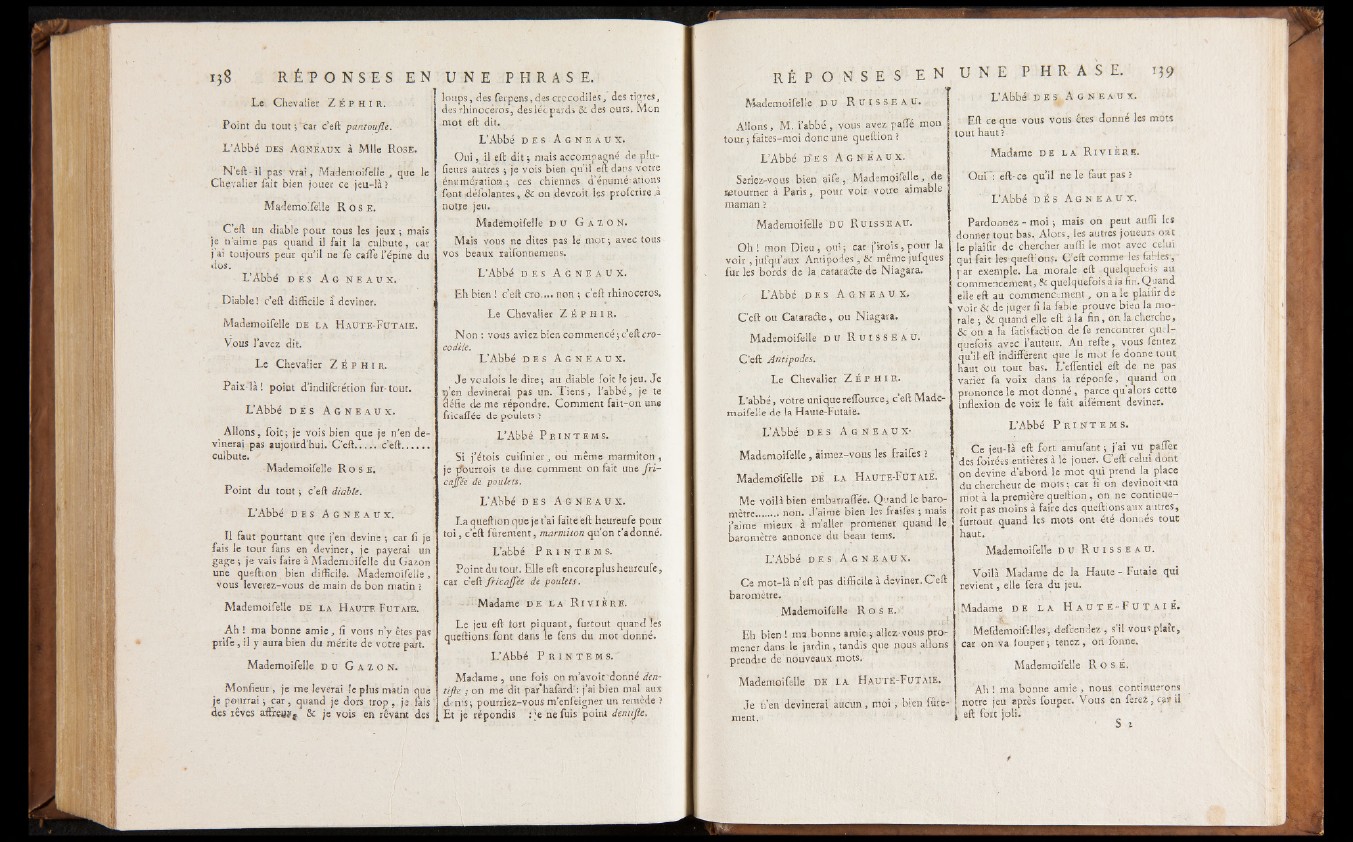 138 RÉPONSES EN UNE PHRASE.
Le Chevalier ZÉPHIR.
Point du tout ; car c'eſt pantoufle.
L'Abbé DES AGNEAUX à Mlle ROSE.
N'eſt-il pas vrai, Mademoiſelle, que le
Chevalier fait bien jouer ce jeu-là ?
Mademoiſelle ROSE.
C'eſt un diable pour tous les jeux ; mais
je n'aime pas quand il fait la culbute, car
j'ai toujours peur qu'il ne ſe caſſe l'épine du
dos.
L'Abbé DES AGNEAUX.
Diable ! c'eſt difficile à deviner.
Mademoiſelle DE LA HAUTE-FUTAIE.
Vous l'avez dit.
Le Chevalier ZÉPHIR.
Paix-là ! point d'indiſcrétion ſur-tout.
L'Abbé DES AGNEAUX.
Allons, ſoit ; je vois bien que je n'en de-
vinerai pas aujourd'hui. C'eſt..... c'eſt......
culbute.
Mademoiſelle ROSE.
Point du tout ; c'eſt diable.
L'Abbé DES AGNEAUX.
Il faut pourtant que j'en devine ; car ſi je
fais le tour ſans en deviner, je payerai un
gage ; je vais faire à Mademoiſelle du Gazon
une queſtion bien difficile. Mademoiſelle,
vous leverez-vous demain de bon matin ?
Mademoiſelle DE LA HAUTE FUTAIE.
Ah ! ma bonne amie, ſi vous n'y êtes pas
priſe, il y aura bien du mérite de votre part.
Mademoiſelle DU GAZON.
Monſieur, je me leverai le plus matin que
je pourrai ; car, quand je dors trop, je fais
des rêves affreux, & je vois en rêvant des
loups, des ſerpens, des crocodiles, des tigres,
des rhinocéros, des léopards & des ours. Mon
mot eſt dit.
L'Abbé DES AGNEAUX.
Oui, il eſt dit ; mais accompagné de plu-
ſieurs autres ; je vois bien qu'il eſt dans votre
énumération ; ces chiennes d'énumérations
ſont déſolantes, & on devroit les proſcrire à
notre jeu.
Mademoiſelle DU GAZON.
Mais vous ne dites pas le mot ; avec tous
vos beaux raiſonnemens.
L'Abbé DES AGNEAUX.
Eh bien ! c'eſt cro.... non ; c'eſt rhinoceros.
Le Chevalier ZÉPHIR.
Non : vous aviez bien commencé ; c'eſt cro-
codile.
L'Abbé DES AGNEAUX.
Je voulois le dire ; au diable ſoit le jeu. Je
n'en devinerai pas un. Tiens, l'abbé, je te
défie de me répondre. Comment fait-on une
fricaſſée de poulets ?
L'Abbé PRINTEMS.
Si j'étois cuiſinier, ou même marmiton,
je pourrois te dire comment on fait une fri-
caſſée de poulets.
L'Abbé DES AGNEAUX.
La queſtion que je t'ai faite eſt heureuſe pour
toi, c'eſt ſûrement, marmiton qu'on t'a donné.
L'abbé PRINTEMS.
Point du tout. Elle eſt encore plus heureuſe,
car c'eſt fricaſſée de poulets.
Madame DE LA RIVIÈRE.
Le jeu eſt fort piquant, ſurtout quand les
queſtions ſont dans le ſens du mot donné.
L'Abbé PRINTEMS.
Madame, une fois on m'avoit donné den-
tiſte ; on me dit par haſard : j'ai bien mal aux
dents ; pourriez-vous m'enſeigner un remède ?
Et je répondis : je ne ſuis point dentiſte.
RÉPONSES EN UNE PHRASE. 139
Mademoiſelle DU RUISSEAU.
Allons, M. l'abbé, vous avez paſſé mon
tour ; faites-moi donc une queſtion ?
L'Abbé DES AGNEAUX.
Seriez-vous bien aiſe, Mademoiſelle, de
retourner à Paris, pour voir votre aimable
maman ?
Mademoiſelle DU RUISSEAU.
Oh ! mon Dieu, oui ; car j'irois, pour la
voir, juſqu'aux Antipodes, & même juſques
ſur les bords de la cataracte de Niagara.
L'Abbé DES AGNEAUX.
C'eſt ou Cataracte, ou Niagara.
Mademoiſelle DU RUISSEAU.
C'eſt Antipodes.
Le Chevalier ZÉPHIR.
L'abbé, votre unique reſſource, c'eſt Made-
moiſelle de la Haute-Futaie.
L'Abbé DES AGNEAUX.
Mademoiſelle, aimez-vous les fraiſes ?
Mademoiſelle DE LA HAUTE-FUTAIE.
Me voilà bien embarraſſée. Quand le baro-
mètre........ non. J'aime bien les fraiſes ; mais
j'aime mieux à m'aller promener quand le
baromètre annonce du beau tems.
L'Abbé DES AGNEAUX.
Ce mot-là n'eſt pas difficile à deviner. C'eſt
baromètre.
Mademoiſelle ROSE.
Eh bien ! ma bonne amie ; allez-vous pro-
mener dans le jardin, tandis que nous allons
prendre de nouveaux mots.
Mademoiſelle DE LA HAUTE-FUTAIE.
Je n'en devinerai aucun, moi, bien ſûre-
ment.
L'Abbé DES AGNEAUX.
Eſt ce que vous vous êtes donné les mots
tout haut ?
Madame DE LA RIVIÈRE.
Oui : eſt-ce qu'il ne le faut pas ?
L'Abbé DES AGNEAUX.
Pardonnez-moi ; mais on peut auſſi les
donner tout bas. Alors, les autres joueurs ont
le plaiſir de chercher auſſi le mot avec celui
qui fait les queſtions. C'eſt comme les fables,
par exemple. La morale eſt quelquefois au
commencement, & quelquefois à la fin. Quand
elle eſt au commencement, on a le plaiſir de
voir & de juger ſi la fable prouve bien la mo-
rale ; & quand elle eſt à la fin, on la cherche,
& on a la ſatisfaction de ſe rencontrer quel-
quefois avec l'auteur. Au reſte, vous ſentez
qu'il eſt indifférent que le mot ſe donne tout
haut ou tout bas. L'eſſentiel eſt de ne pas
varier ſa voix dans la réponſe, quand on
prononce le mot donné, parce qu'alors cette
inflexion de voix le fait aiſément deviner.
L'Abbé PRINTEMS.
Ce jeu-là eſt fort amuſant ; j'ai vu paſſer
des ſoirées entières à le jouer. C'eſt celui dont
on devine d'abord le mot qui prend la place
du chercheur de mots ; car ſi on devinoit un
mot à la première queſtion, on ne continue-
roit pas moins à faire des queſtions aux autres,
ſurtout quand les mots ont été donnés tout
haut.
Mademoiſelle DU RUISSEAU.
Voilà Madame de la Haute-Futaie qui
revient, elle ſera du jeu.
Madame DE LA HAUTE-FUTAIE.
Meſdemoiſelles, deſcendez, s'il vous plaît,
car on va ſouper ; tenez, on ſonne.
Mademoiſelle ROSE.
Ah ! ma bonne amie, nous continuerons
notre jeu après ſouper. Vous en ſerez, car il
eſt fort joli.
S 2